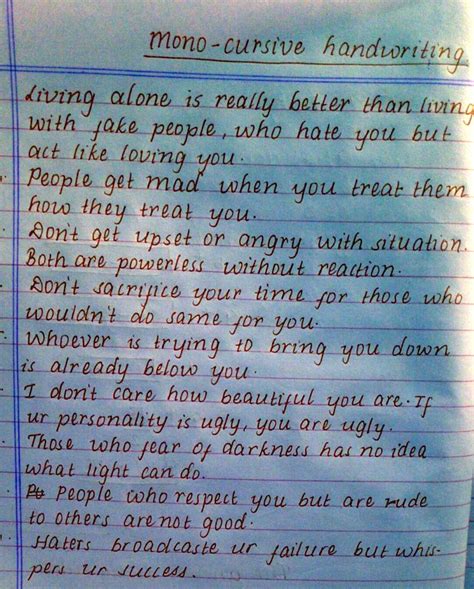 Mono-cursive handwriting.
Living alone is really better than living
with fake people, who hate you but
act like loving you.
People get mad when you treat them
how they treat you.
Don't get upset or angry with situation.
Both are powerless without reaction.
Don't sacrifice your time for those who
wouldn't do same for you.
Whoever is trying to bring you down
is already below you.
I don't care how beautiful you are. If
ur personality is ugly, you are ugly.
Those who fear of darkness has no idea
what light can do.
People who respect you but are rude
to others are not good.
Haters broadcaste ur failure but whis-
pers ur success.